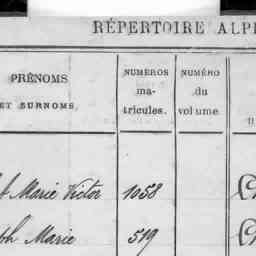 RÉPERTOIRE ALP
PRÉNOMS
ET SURNOMS.
NUMÉROS
ma-
tricules.
NUMÉRO
du
volume
Marie Victor 1058
ph Marie 519